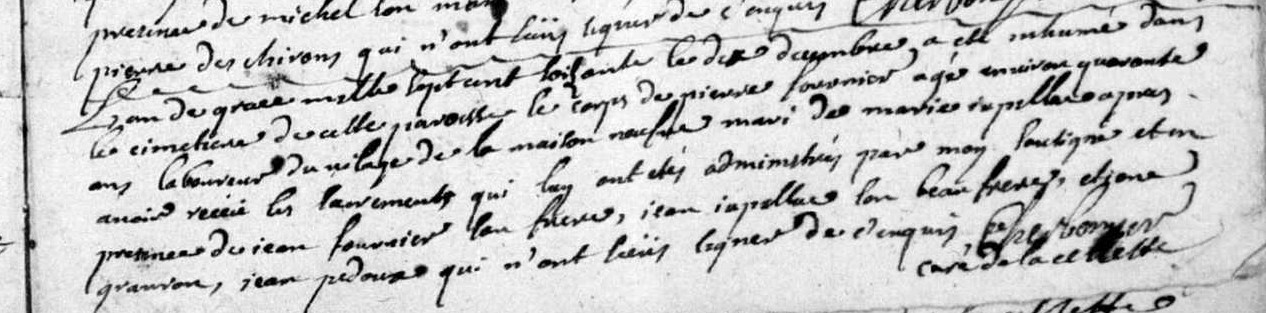 presence de michel son
pierre des chirons qui n'ont sceus signer de c'enquis
L'an de grace mille sept cent soisante le dix decembre, a eté inhumé dans
le cimetiere de cette paroisse le corps de pierre fournier agé environ quarante
ans laboureur du vilage de la maison neufve mari de marie iapellae apres
avoir receü les sacrements qui luy ont etés administrés par moy soutigné et en
presence de jean fournier son frere, jean iapellae son beau frere, et
jean pedoux qui n'ont sceüs signer de c'enquis
curé de la cellette